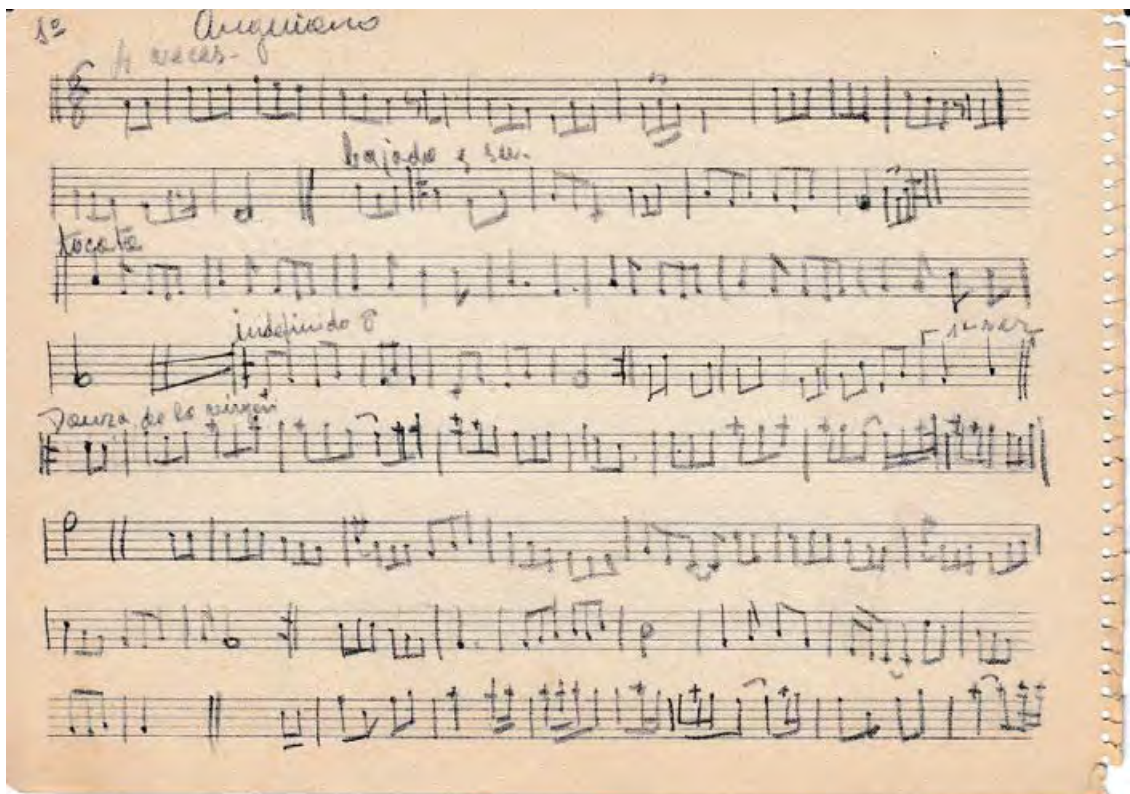 1º Anguiano
4 veces.
bajada
tocata
indefinido 8
1ª vez
Danza de la virgen